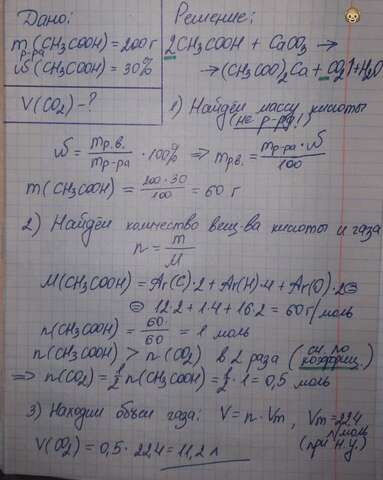 Дано:
m р-ра (CH₃COOH) = 200 г
ω (CH₃COOH) = 30%
V(CO₂) - ?
Решение:
2CH₃COOH + CaCO₃ →
→ (CH₃COO)₂Ca + CO₂↑ + H₂O
1) Найдём массу кислоты
(не р-ра!)
ω = mр.в. / mр-ра · 100% ⇒ mр.в. = mр-ра · ω / 100
m(CH₃COOH) = 200 · 30 / 100 = 60 г
2) Найдём количество вещ-ва кислоты и газа
n = m / M
M(CH₃COOH) = Ar(C)·2 + Ar(H)·4 + Ar(O)·2 ⊜
⊜ 12·2 + 1·4 + 16·2 = 60 г/моль
n(CH₃COOH) = 60 / 60 = 1 моль
n(CH₃COOH) > n(CO₂) в 2 раза (см. по
коэффиц.)
⇒ n(CO₂) = 1/2 n(CH₃COOH) = 1/2 · 1 = 0,5 моль
3) Находим объем газа: V = n · Vm, Vm = 22,4
л/моль
V(CO₂) = 0,5 · 22,4 = 11,2 л (при н.у.)